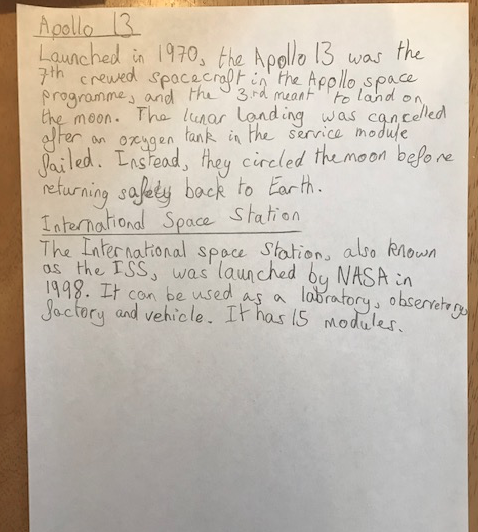 Apollo 13
Launched in 1970, the Apollo 13 was the
7th crewed spacecraft in the Apollo space
programme, and the 3rd meant to land on
the moon. The lunar landing was cancelled
after an oxygen tank in the service module
failed. Instead, they circled the moon before
returning safety back to Earth.
International Space Station
The International space Station, also known
as the ISS, was launched by NASA in
1998. It can be used as a labratory, observetory,
factory and vehicle. It has 15 modules.